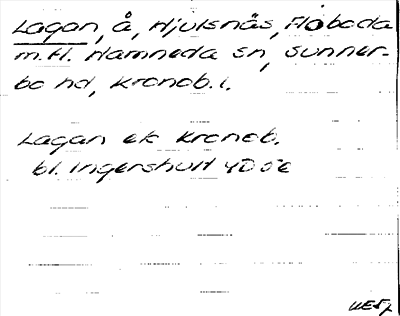 Lagan, å, Hjulsnäs, Flåboda
m.fl. Hamneda sn, Sunner-
bo hd, Kronob.l.
Lagan ek Kronob.
bl. Ingershult 4D 5e